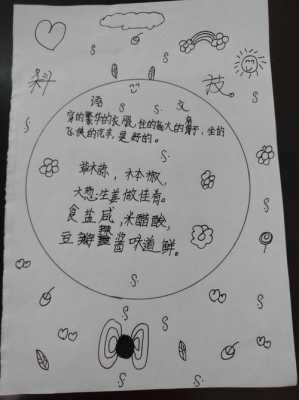 科 技
语 文
穿的繁华的衣服,住的高大的房子,坐的
飞快的汽车,是野的。
草木琼,木本椒,
大葱生姜做佳肴。
食盐咸,米醋酸,
豆瓣辣酱味道鲜。